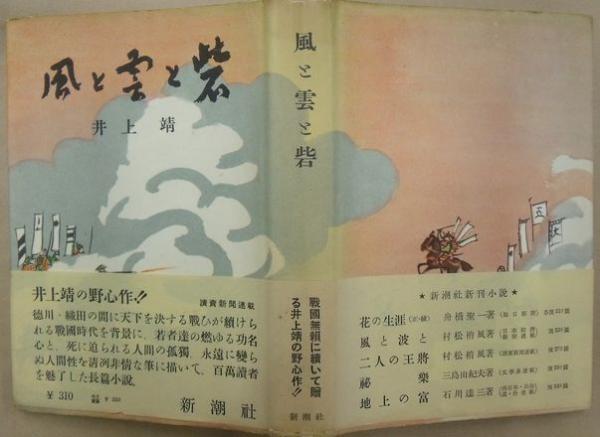 風と雲と砦
井上靖
井上靖の野心作!!
讀賣新聞連載
徳川・織田の間に天下を決する戰ひが續けら
れる戰國時代を背景に、若者達の燃ゆる功名
心と、死に迫られる人間の孤獨、永遠に變ら
ぬ人間性を清冽非情な筆に描いて、百萬讀者
を魅了した長篇小説。
¥ 310
新潮社
風と雲と砦
戰國無頼に續いて贈
る井上靖の野心作!!
新潮社
★新潮社新刊小説★
花の生涯 (正・續) 舟橋聖一著
風と波と 村松梢風著
二人の王將 村松梢風著
祕樂 三島由紀夫著
地上の富 石川達三著